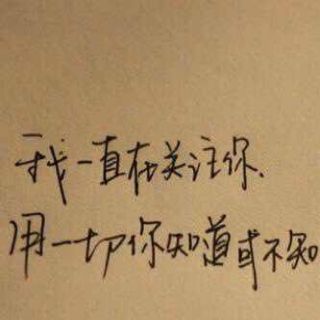 我一直在关注你.
用一切你知道或不知